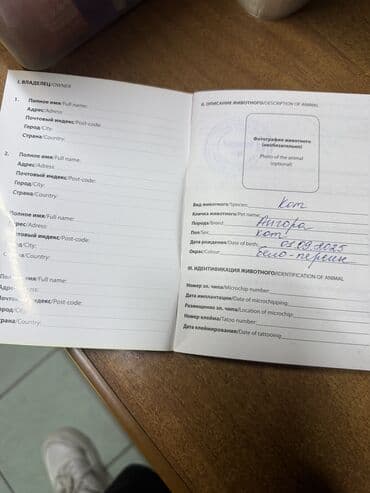 I. ВЛАДЕЛЕЦ/OWNER
1. Полное имя/Full name:
Адрес/Adress
Почтовый индекс/Post-code:
Город/City:
Страна/Country:
2. Полное имя/Full name:
Адрес/Adress:
Почтовый индекс/Post-code:
Город/City:
Страна/Country:
Полное имя/Full name:
Адрес/Adress:
Почтовый индекс/Post-code:
Город/City:
Страна/Country:
Полное имя/Full name:
Адрес/Adress:
Почтовый индекс/Post-code:
Город/City:
Страна/Country:
II. ОПИСАНИЕ ЖИВОТНОГО/DESCRIPTION OF ANIMAL
Фотография животного
(необязательно)
Photo of the animal
(optional)
Вид животного/Species: Кот
Кличка животного/Pet name:
Порода/Breed: Ангора
Пол/Sex: кот
Дата рождения/Date of birth: 01.09.2025
Окрас/Colour: бело-персик
III. ИДЕНТИФИКАЦИЯ ЖИВОТНОГО/IDENTIFICATION OF ANIMAL
Номер эл. чипа/Microchip number:
Дата имплантации/Date of microchipping:
Размещение эл. чипа/Location of microchip:
Номер клейма/Tatoo number:
Дата клеймирования/Date of tattooing: